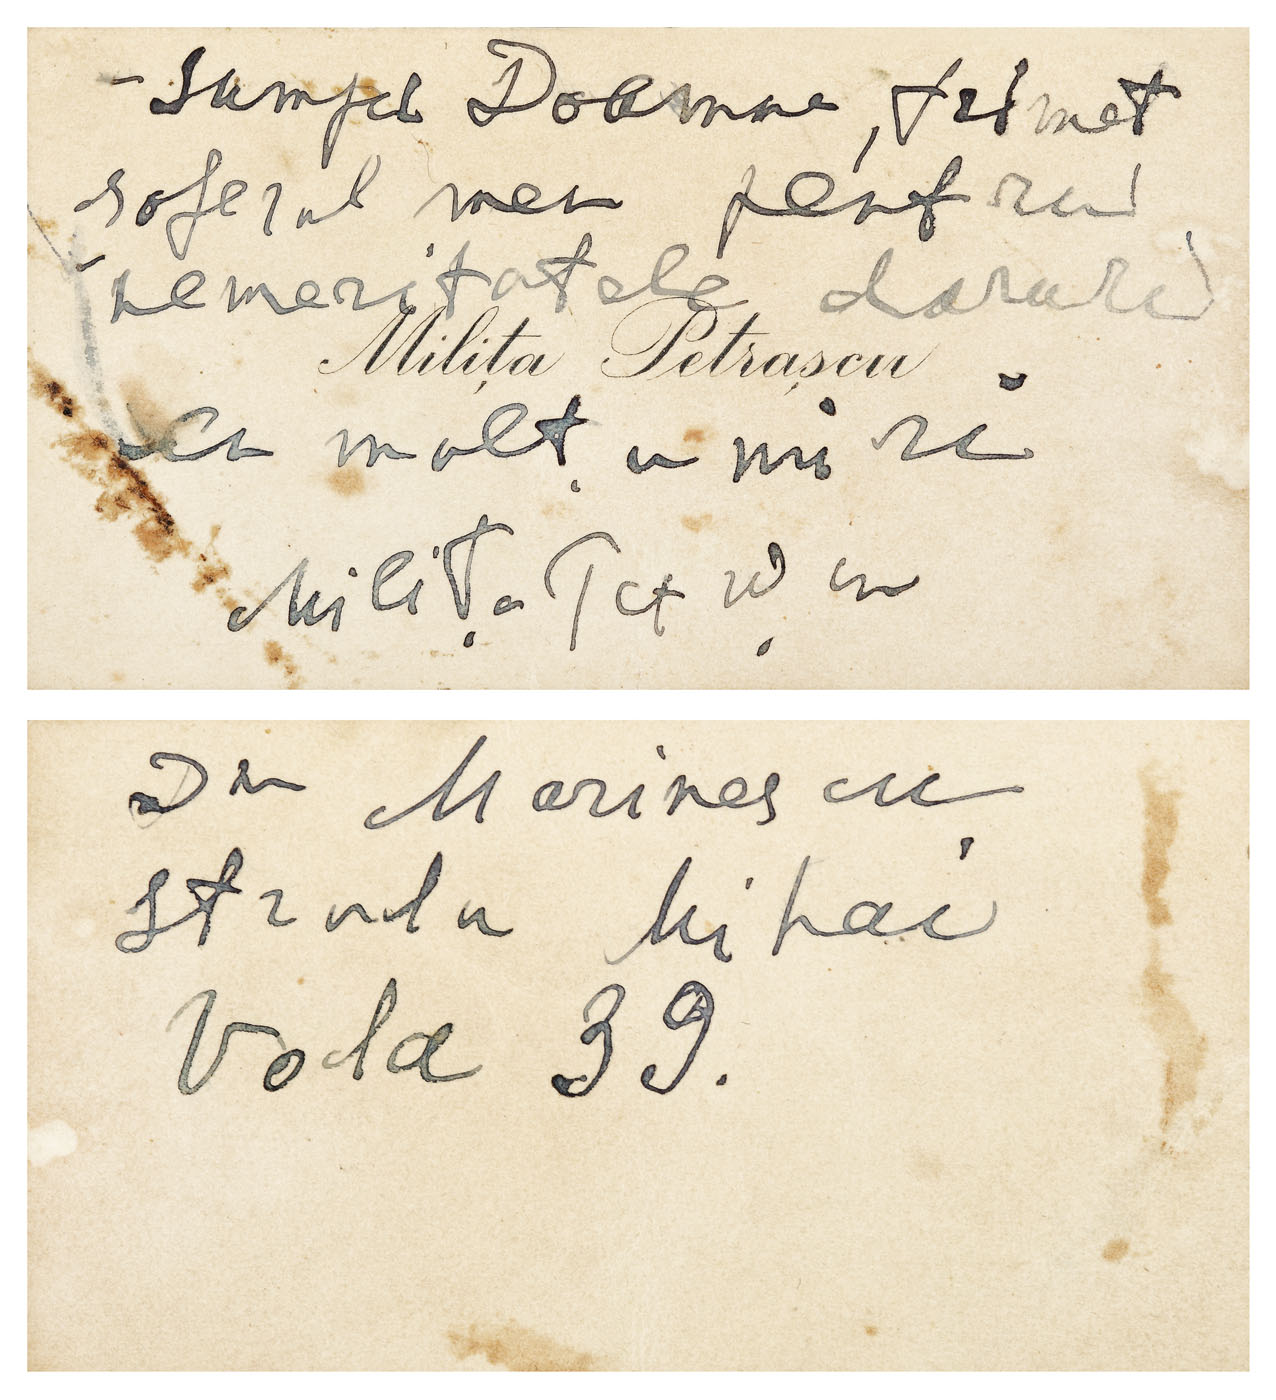 -Scumpă Doamnă, trimet
șoferul meu pentru
nemeritatele daruri
Milița Petrașcu
cu mulțumiri
Milița Petrașcu
Dr Marinescu
strada Mihai
Vodă 39.